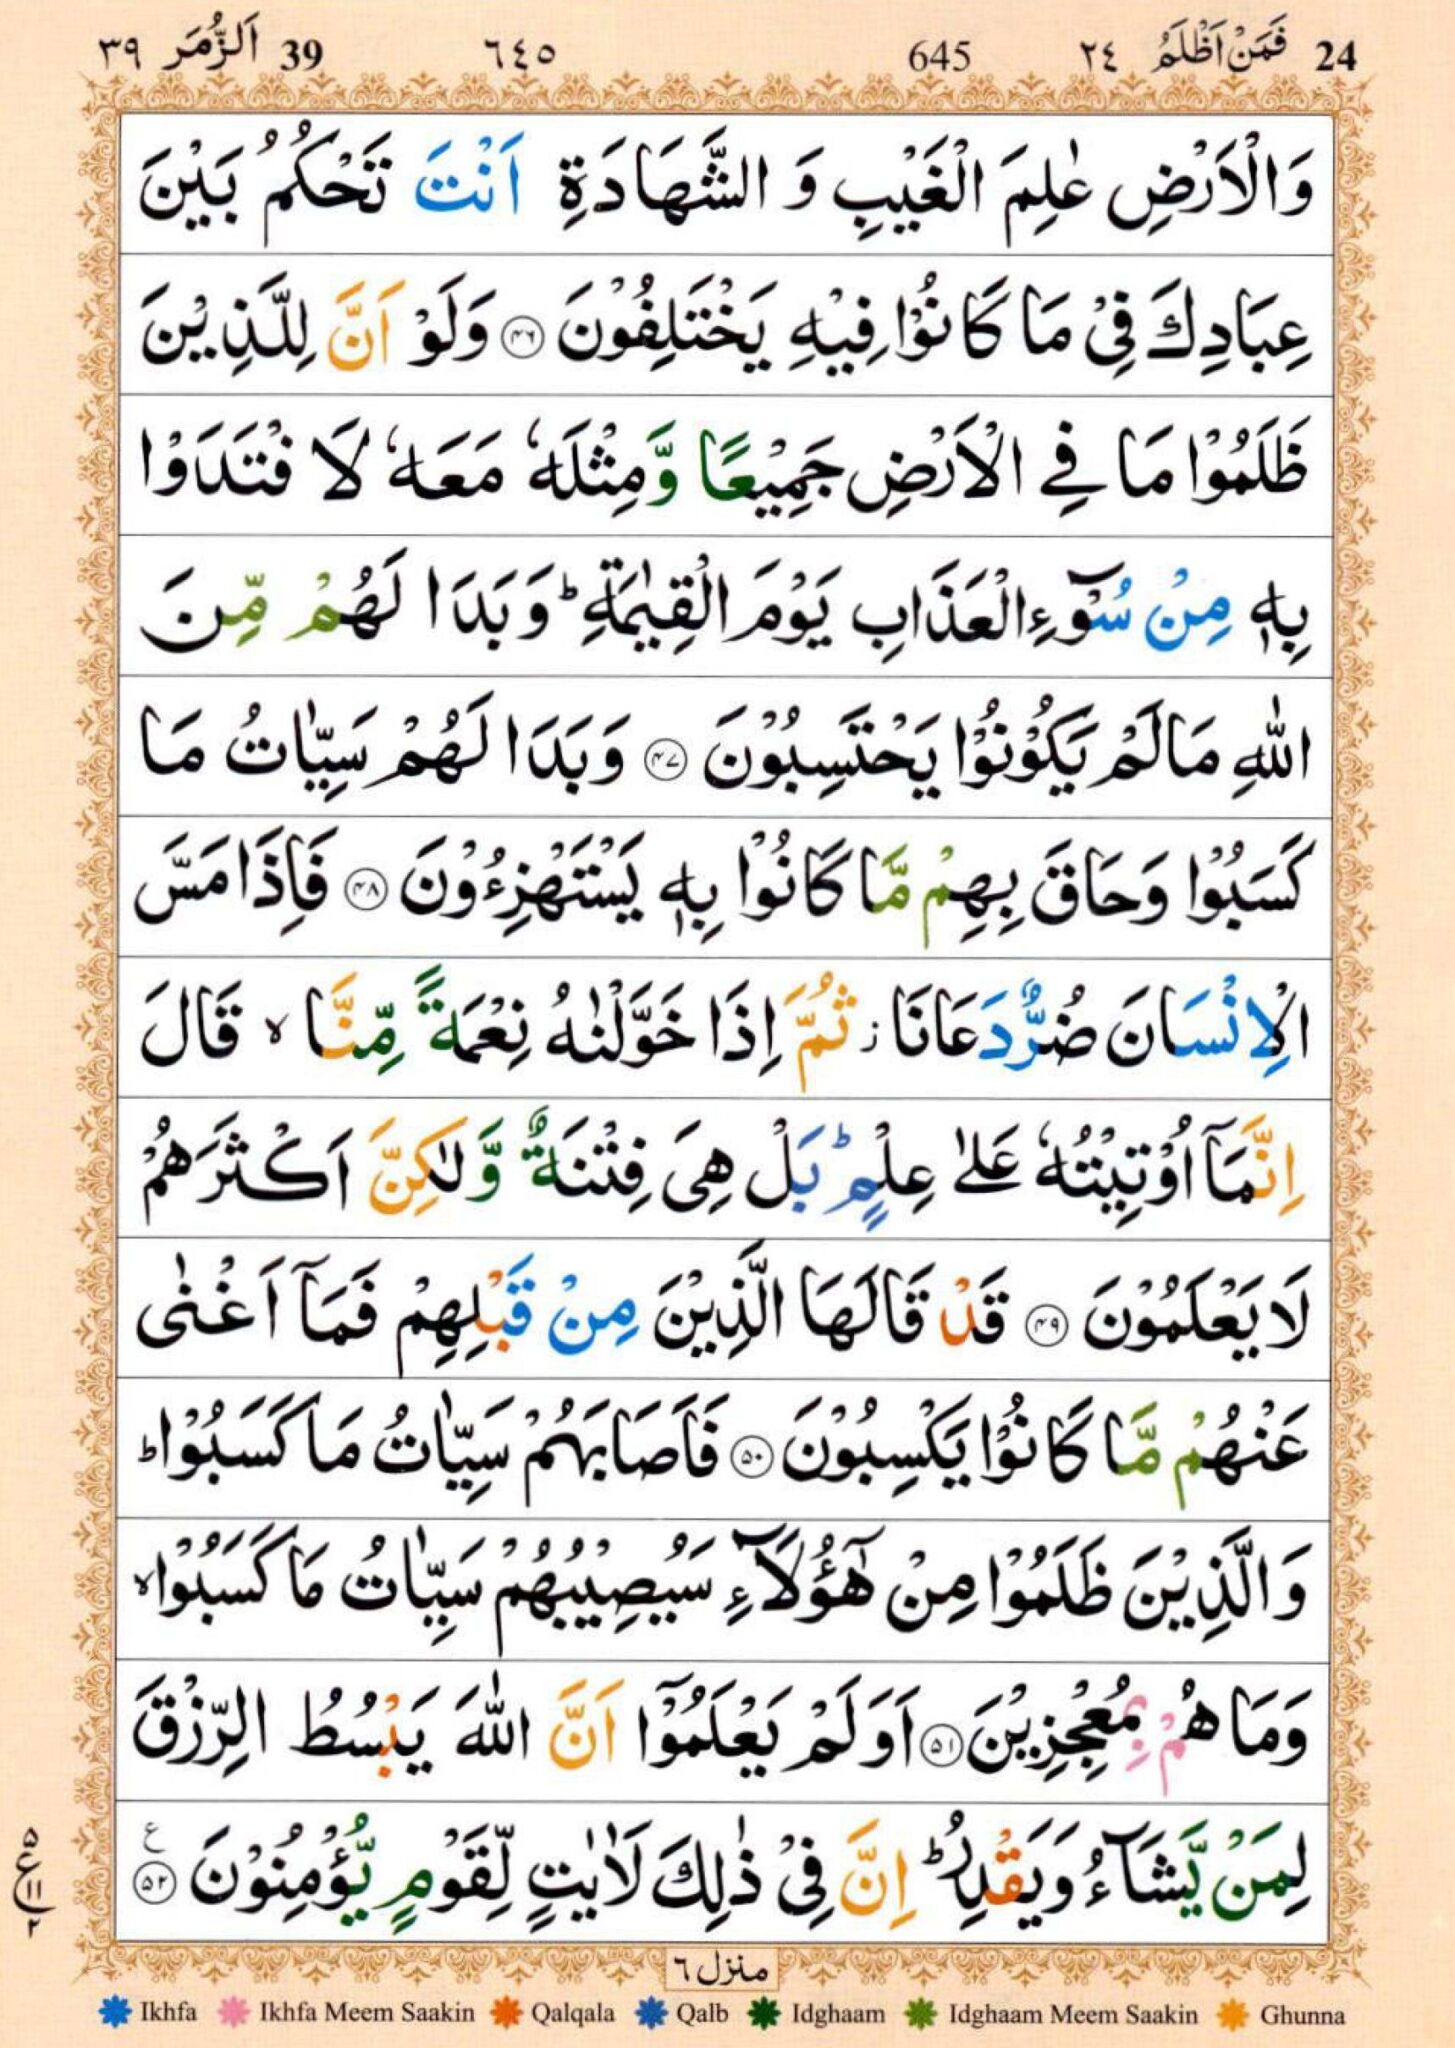 24 فَمَنْ اَظْلَمُ ٢٤ 645 ٦٤٥ 39 اَلزُّمَر ٣٩
وَالْاَرْضِ عٰلِمَ الْغَيْبِ وَ الشَّهَادَةِ اَنْتَ تَحْكُمُ بَيْنَ
عِبَادِكَ فِيْ مَا كَانُوْا فِيْهِ يَخْتَلِفُوْنَ ﴿۴۶﴾ وَلَوْ اَنَّ لِلَّذِيْنَ
ظَلَمُوْا مَا فِي الْاَرْضِ جَمِيْعًا وَّمِثْلَهٗ مَعَهٗ لَا فْتَدَوْا
بِهٖ مِنْ سُوْٓءِ الْعَذَابِ يَوْمَ الْقِيٰمَةِؕ وَبَدَا لَهُمْ مِّنَ
اللّٰهِ مَا لَمْ يَكُوْنُوْا يَحْتَسِبُوْنَ ﴿۴۷﴾ وَبَدَا لَهُمْ سَيِّاٰتُ مَا
كَسَبُوْا وَحَاقَ بِهِمْ مَّا كَانُوْا بِهٖ يَسْتَهْزِءُوْنَ ﴿۴۸﴾ فَاِذَا مَسَّ
الْاِنْسَانَ ضُرٌّ دَعَانَا ز ثُمَّ اِذَا خَوَّلْنٰهُ نِعْمَةً مِّنَّا ۙ قَالَ
اِنَّمَآ اُوْتِيْتُهٗ عَلٰى عِلْمٍؕ بَلْ هِيَ فِتْنَةٌ وَّلٰكِنَّ اَكْثَرَهُمْ
لَا يَعْلَمُوْنَ ﴿۴۹﴾ قَدْ قَالَهَا الَّذِيْنَ مِنْ قَبْلِهِمْ فَمَآ اَغْنٰى
عَنْهُمْ مَّا كَانُوْا يَكْسِبُوْنَ ﴿۵۰﴾ فَاَصَابَهُمْ سَيِّاٰتُ مَا كَسَبُوْاؕ
وَالَّذِيْنَ ظَلَمُوْا مِنْ هٰٓؤُلَآءِ سَيُصِيْبُهُمْ سَيِّاٰتُ مَا كَسَبُوْاۙ
وَمَا هُمْ بِمُعْجِزِيْنَ ﴿۵۱﴾ اَوَلَمْ يَعْلَمُوْٓا اَنَّ اللّٰهَ يَبْسُطُ الرِّزْقَ
لِمَنْ يَّشَآءُ وَيَقْدِرُؕ اِنَّ فِيْ ذٰلِكَ لَاٰيٰتٍ لِّقَوْمٍ يُّؤْمِنُوْنَ ﴿۵۲﴾ ع
۵ ع ۱۱ ۲
منزل ٦
Ikhfa Ikhfa Meem Saakin Qalqala Qalb Idghaam Idghaam Meem Saakin Ghunna